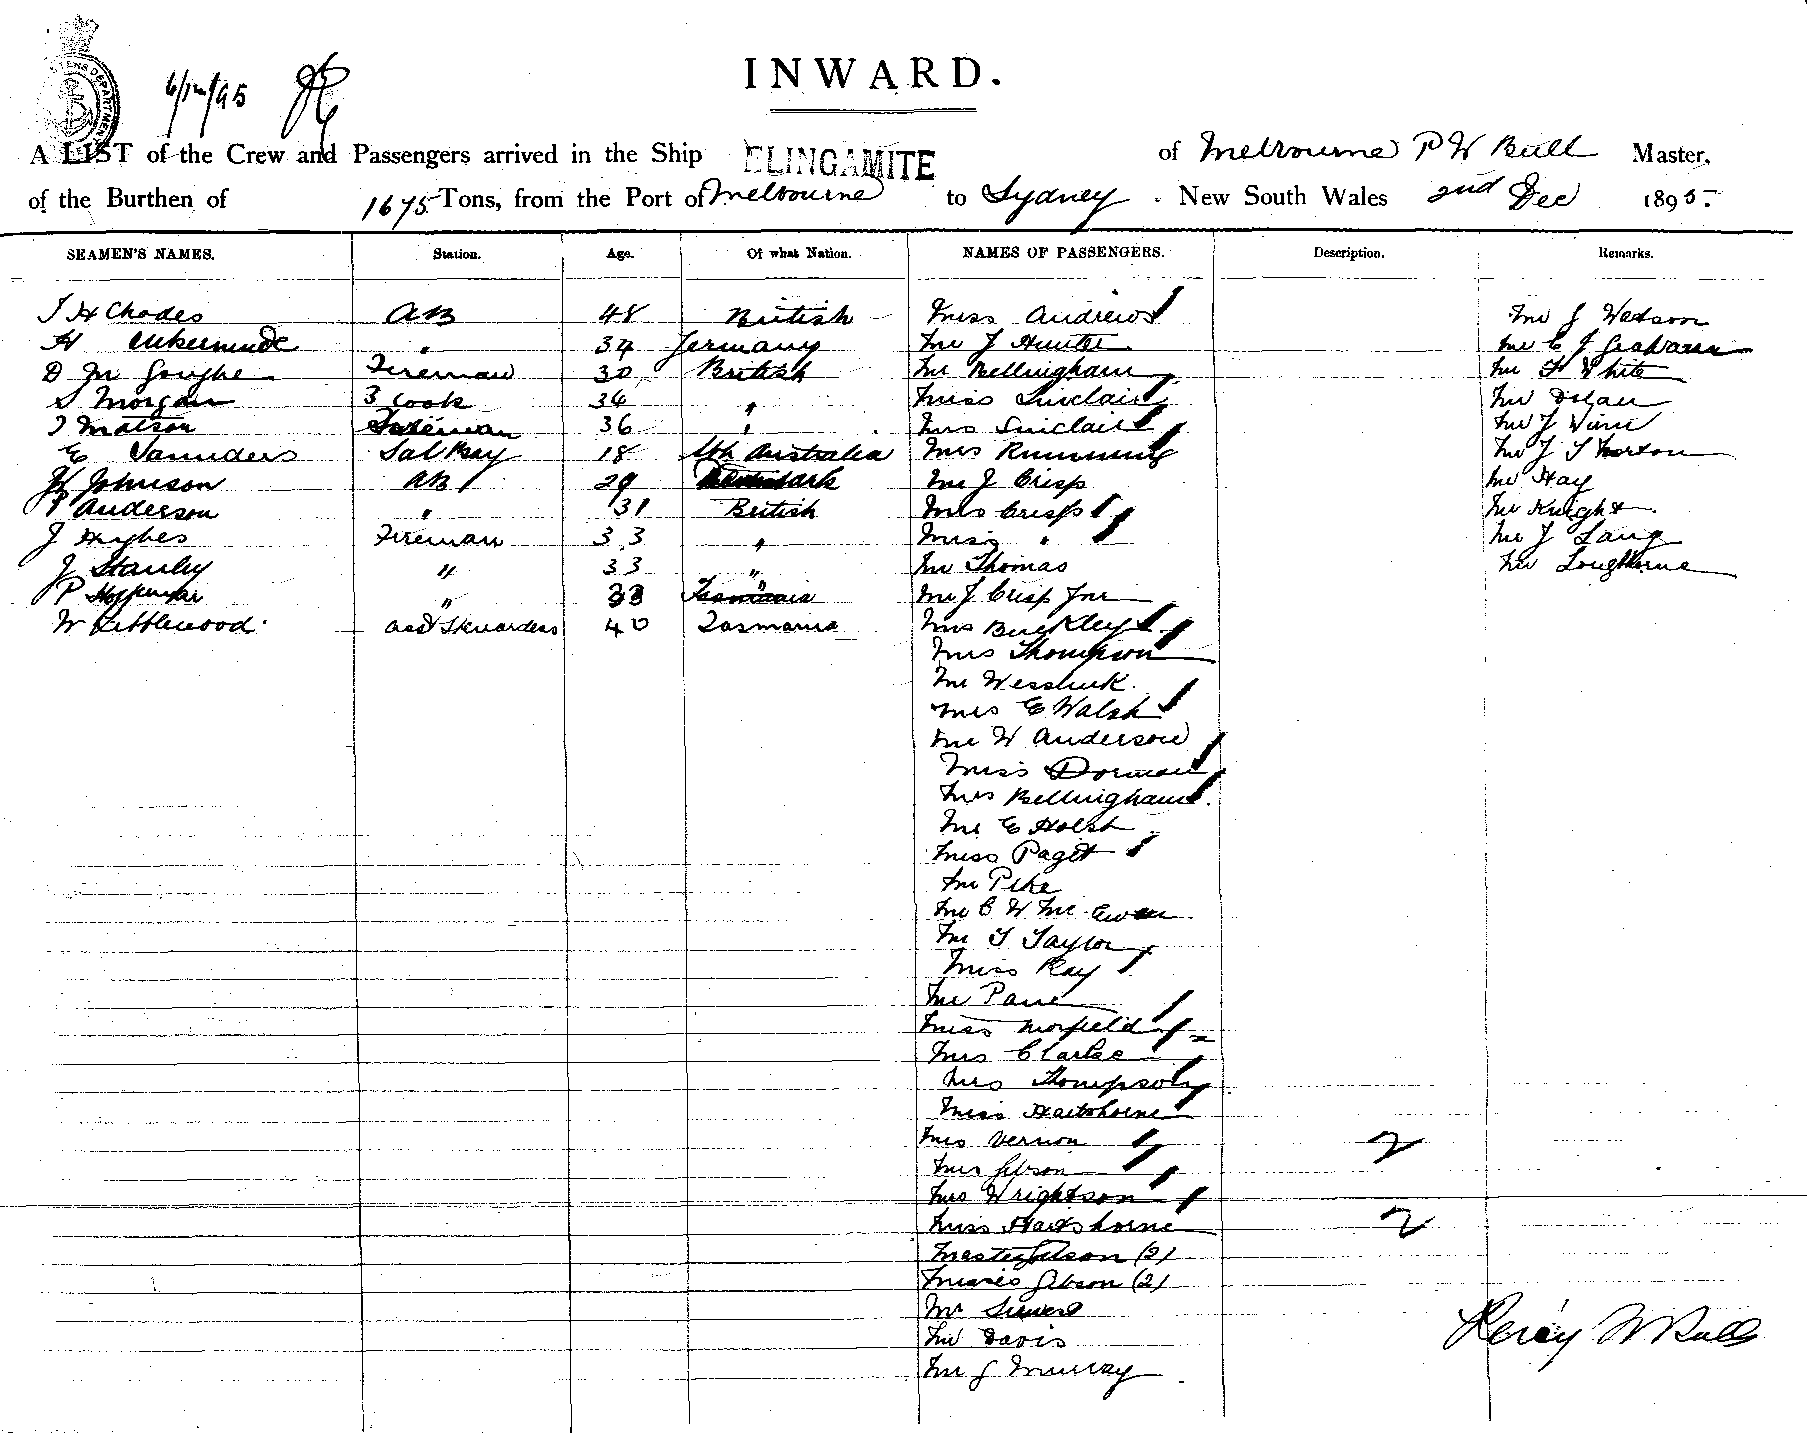 6/12/95
INWARD.
A LIST of the Crew and Passengers arrived in the Ship ELINGAMITE of Melbourne P W Bull Master,
of the Burthen of 1675 Tons, from the Port of Melbourne to Sydney New South Wales 2nd Dec 1895
SEAMEN'S NAMES. Station. Age. Of what Nation. NAMES OF PASSENGERS. Description. Remarks.
J H Chodes AB 48 British Miss Andrews Mr J Watson
H " 34 Germany Mr J Hunter Mr C J Graham
D Fireman 30 British Mr Bellingham Mr F White
S Morgan 3 Cook 34 " Miss Sinclair Mr Dolan
J Matson Fireman 36 " Mrs Sinclair Mr J
E Saunders 18 Sth Australia Mrs Running Mr J Thornton
W Johnson AB 29 Denmark Mr J Crisp Mr Hay
P Anderson " 31 British Mrs Crisp Mr Knight
J Hughes Fireman 33 " Miss " Mr J Lang
J Stanley " 33 " Mr Thomas Mr
P " 33 " Mr J Crisp Jnr
W Kibblewood asst Stewardess 40 Tasmania Mrs Buckley
Mrs Thompson
Mr
Mrs E Walsh
Mr W Anderson
Miss Dorman
Mrs Bellingham
Mr E Holst
Miss Paget
Mr Pike
Mr C W Mc Ewen
Mr T Taylor
Miss Ray
Mr Pane
Miss Morfield
Mrs Clarke
Mrs Thompson
Miss Hartshorne
Mrs Vernon 2
Mrs Gibson
Mrs Wrightson
Miss Hartshorne 2
Master Gibson (2)
Misses Gibson (2)
Mr
Mr Davis
Mr J Murray
Percy W Bull